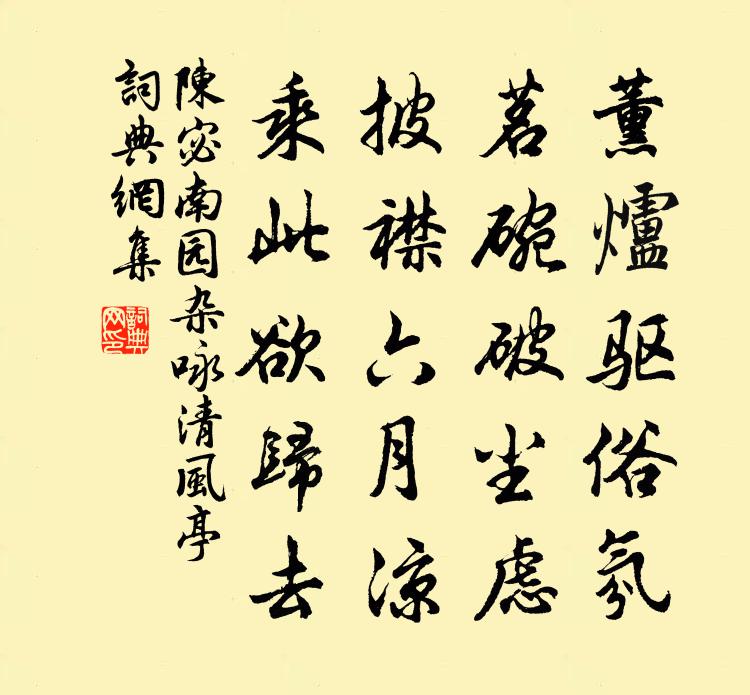 薰爐驱俗氛
茗碗破尘虑
披襟六月凉
乘此欲歸去
陳宓南园杂咏清風亭
詞典網集
詞典网印